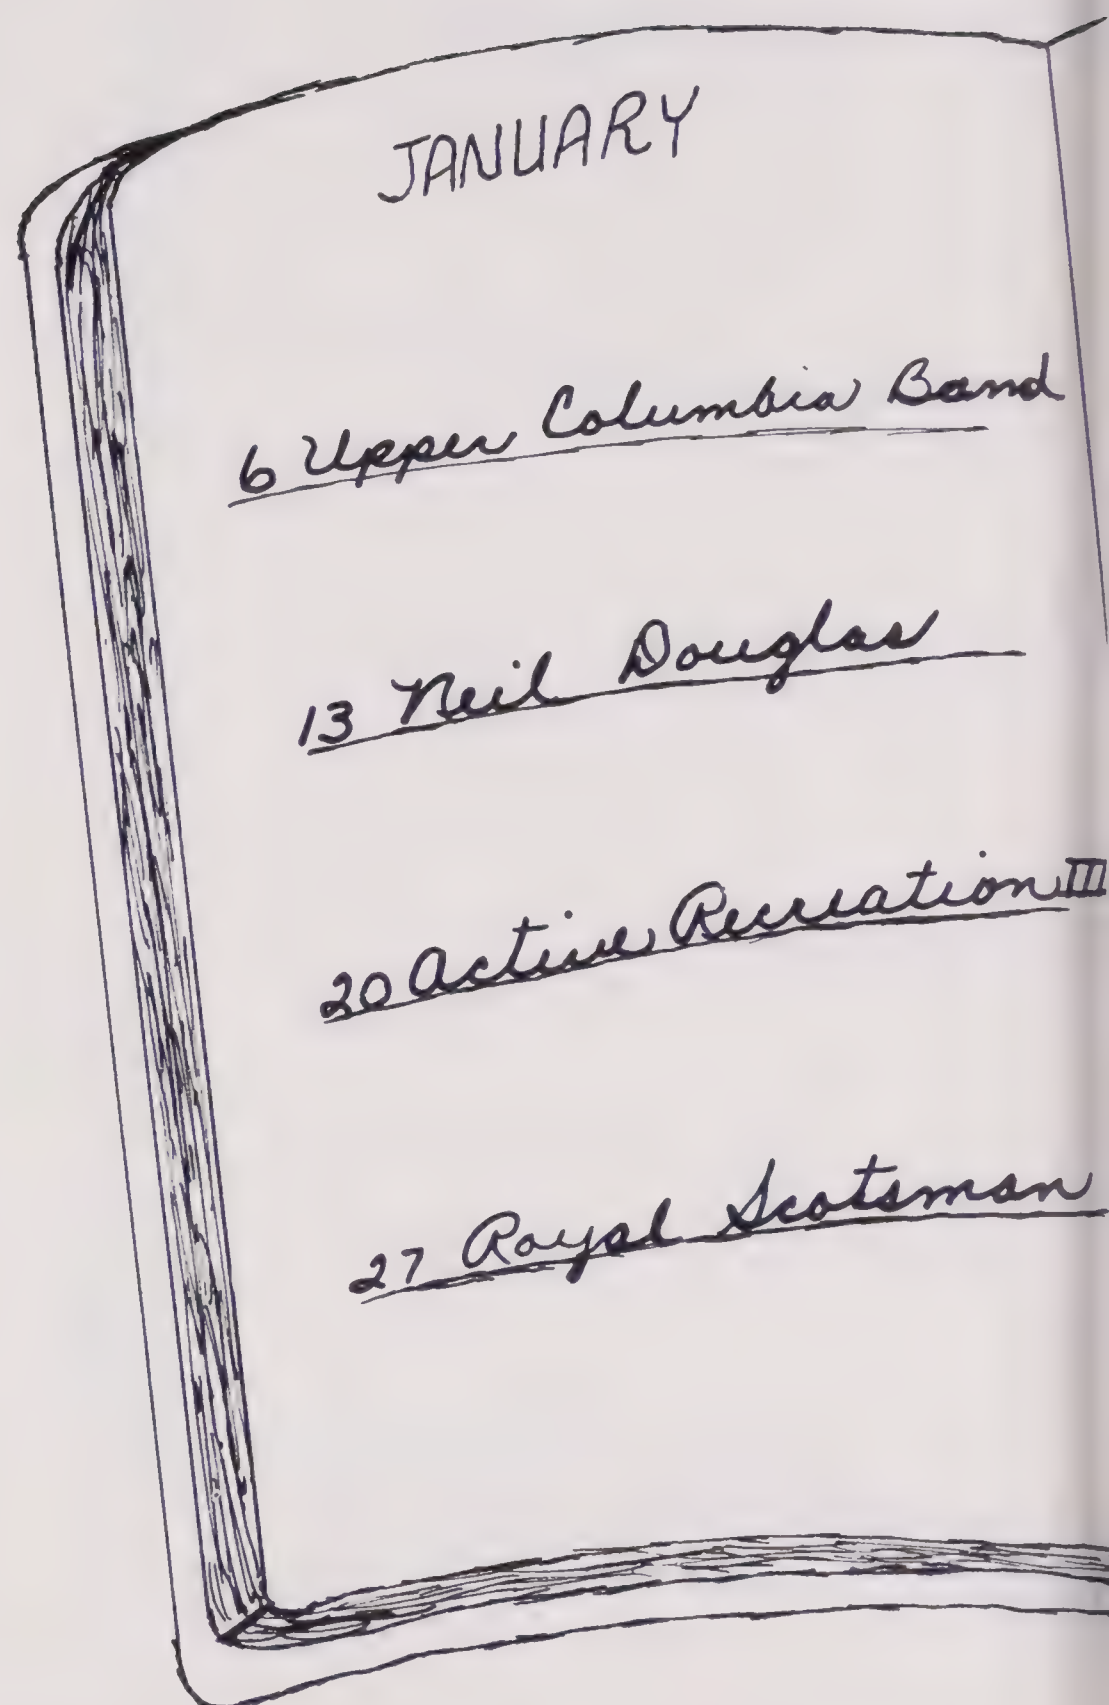 JANUARY
6 Upper Columbia Band
13 Neil Douglas
20 Active Recreation III
27 Royal Scotsman